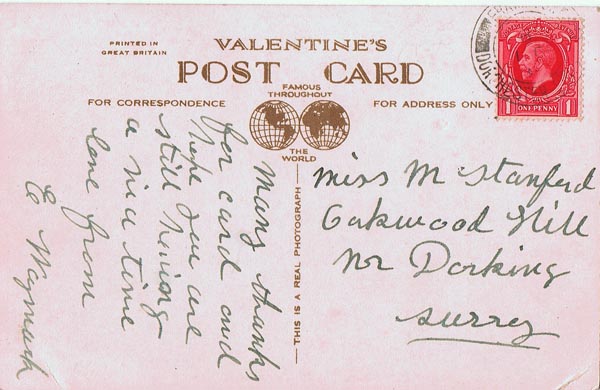 PRINTED IN
GREAT BRITAIN
VALENTINE'S
POST CARD
FAMOUS
THROUGHOUT
THE
WORLD
FOR CORRESPONDENCE
FOR ADDRESS ONLY
THIS IS A REAL PHOTOGRAPH
1 ONE PENNY 1
Many thanks
for card and
hope you are
still having
a nice time
love from
Miss M Stanford
Oakwood Hill
Nr Dorking
Surrey